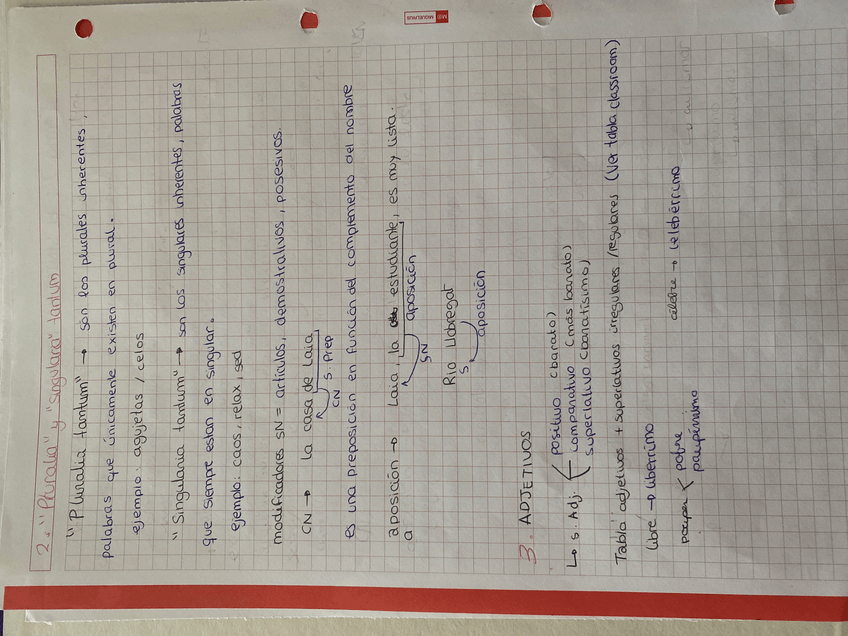 2. "Pluralia" y "singularia" tantum
"Pluralia tantum" → son los plurales inherentes,
palabras que únicamente existen en plural.
ejemplo: agujetas / celos
"Singularia tantum" → son los singulares inherentes, palabras
que siempre estan en singular.
ejemplo: caos, relax, sed
modificadores SN = artículos, demostrativos, posesivos.
CN → la casa de Laia
CN S. Prep
es una preposición en función del complemento del nombre
aposición → Laia, la estudiante, es muy lista.
a
SN aposición
Rio Llobregat
S aposición
3. ADJETIVOS
↳ S. Adj. positivo (barato)
comparativo (más barato)
superlativo (baratísimo)
Tabla adjetivos + superlativos irregulares / regulares (Ver tabla classroom)
libre → libérrimo
célebre → celebérrimo
pauper < pobre
paupérrimo
MIQUELRIUS